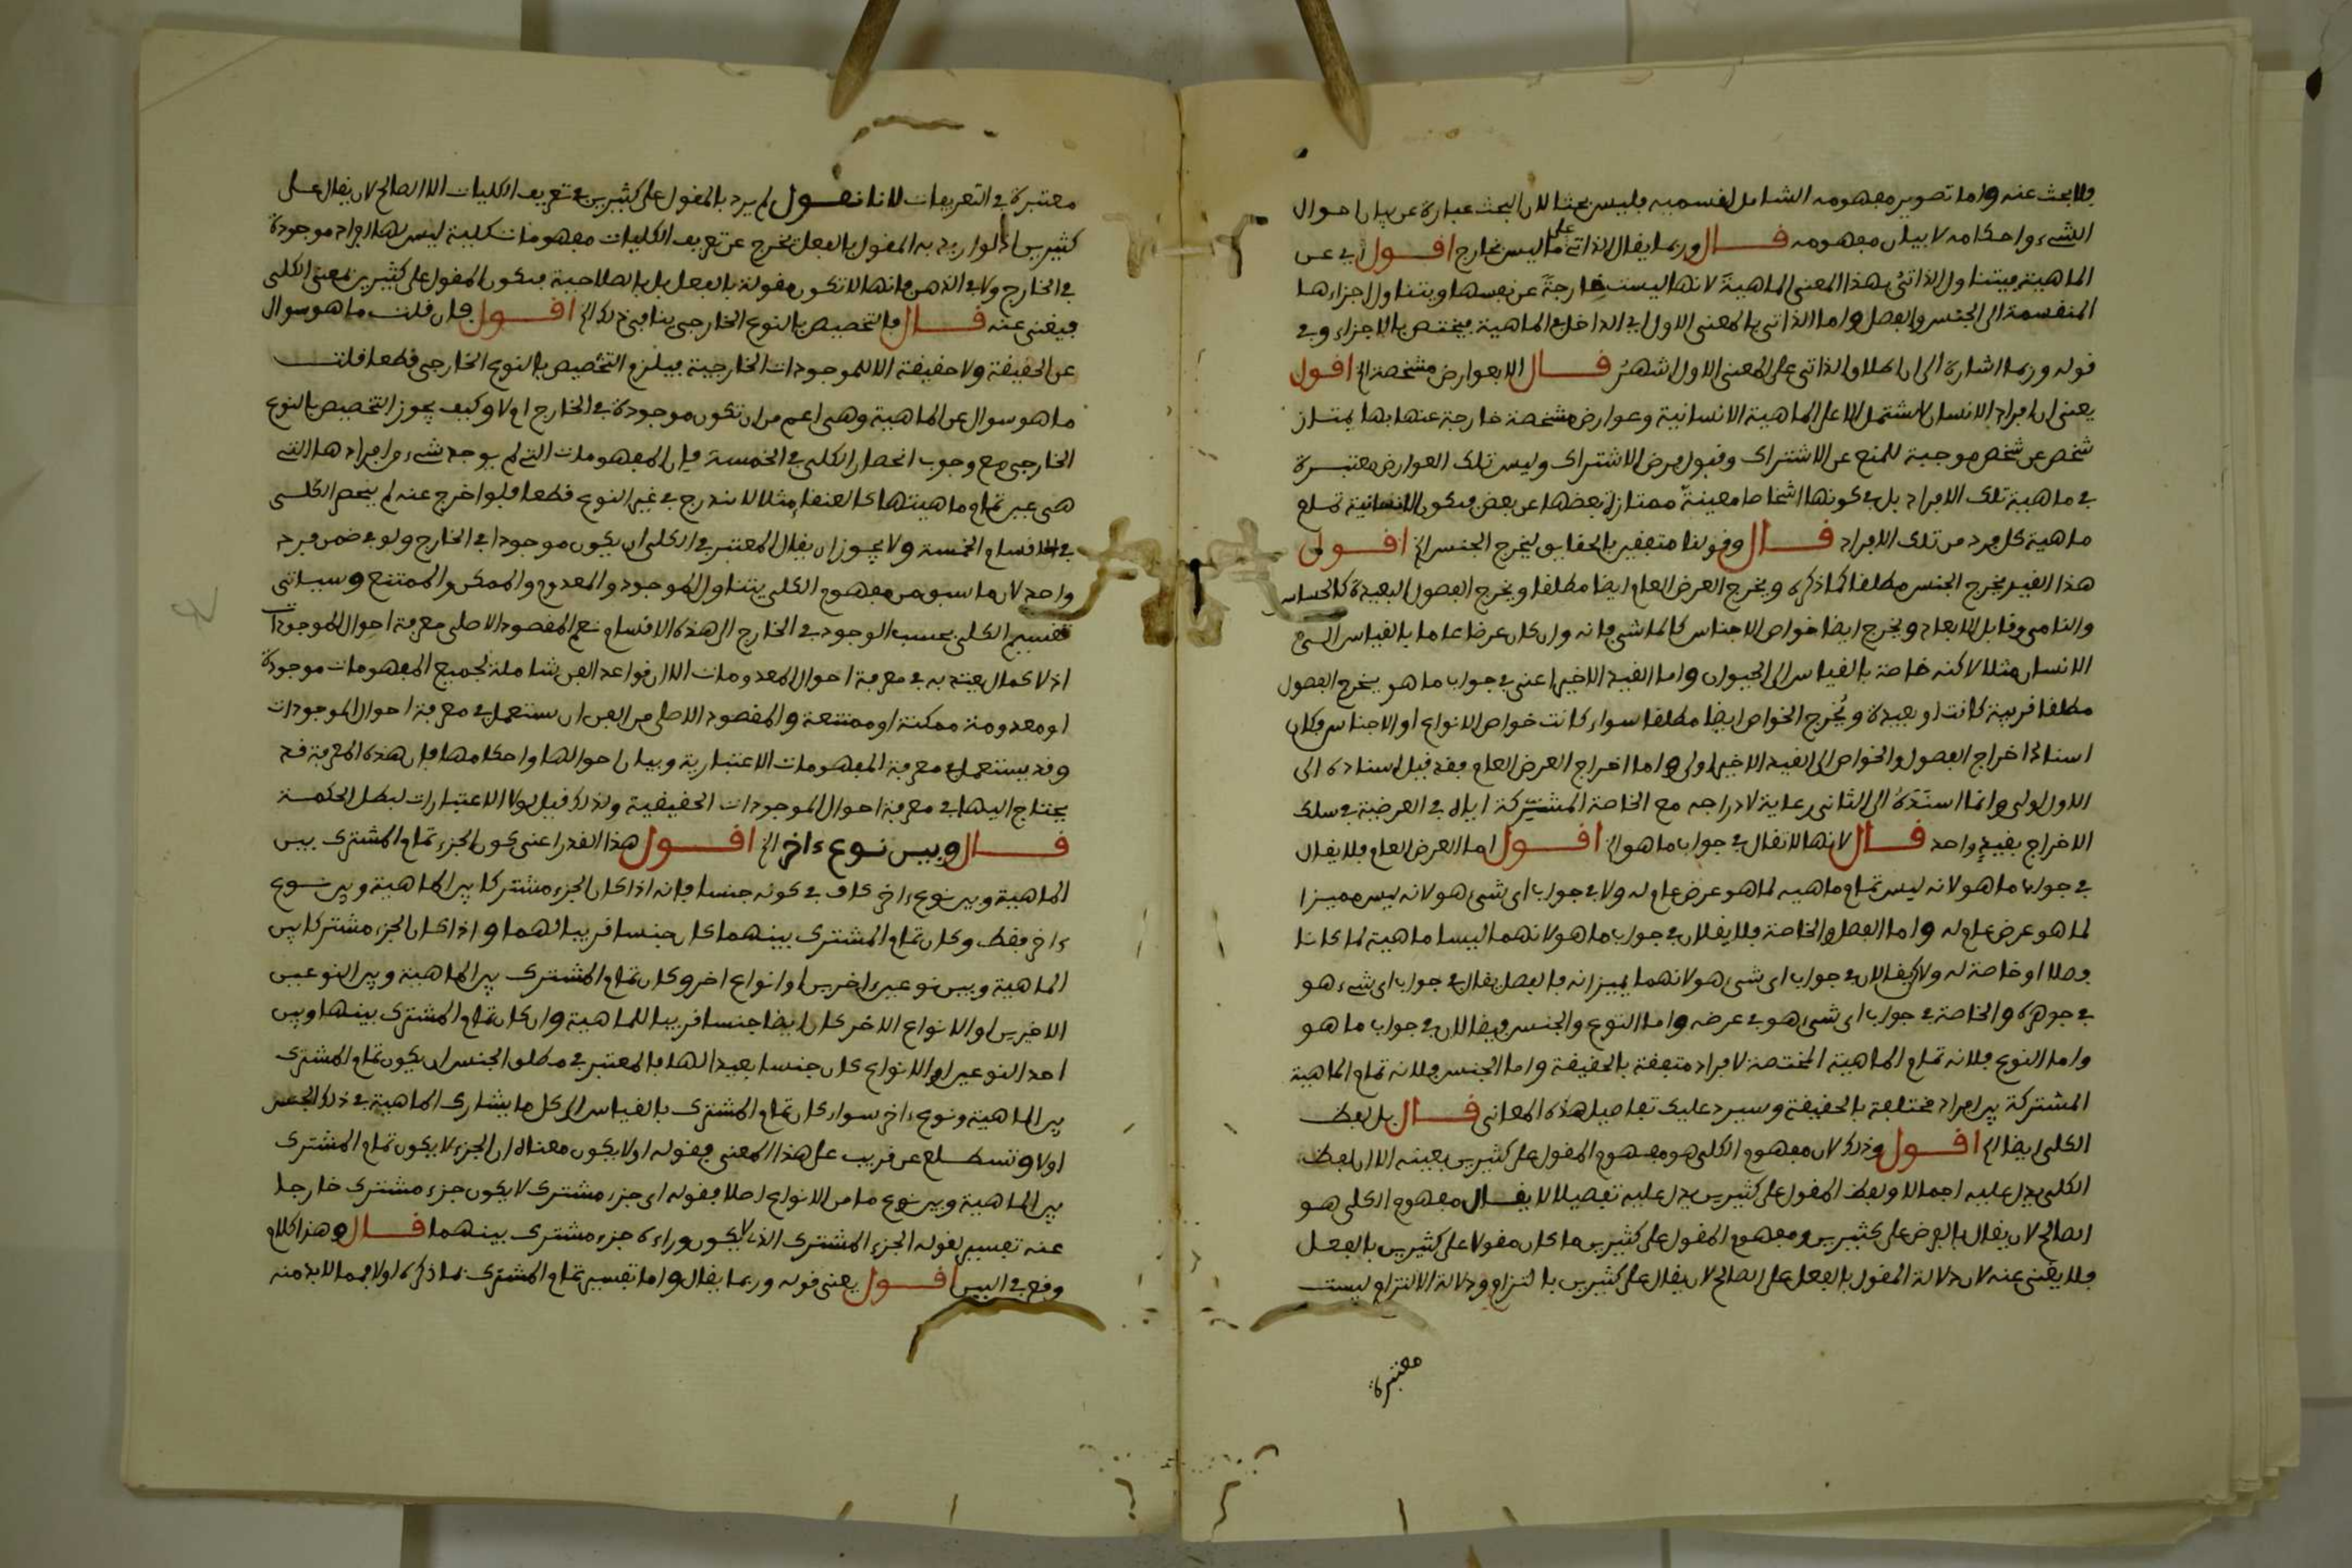 فلا بحث عنه واما تصوير مفهومه الشامل لقسميه فليس بحثا لان البحث عبارة عن بيان احوال
الشيء واحكامه لا بيان مفهومه قال وربما يقال الذاتي على ما ليس بخارج اقول اي عن
الماهية فيتناول الذاتي بهذا المعنى الماهية لانها ليست خارجة عن نفسها ويتناول اجزاءها
المنقسمة الى الجنس والفصل واما الذاتي بالمعنى الاول اي الداخل في الماهية فيختص بالاجزاء وفي
قوله وربما اشارة الى ان اطلاق الذاتي على المعنى الاول اشهر قال الا بعوارض مشخصة الخ اقول
يعني ان افراد الانسان لا تشتمل الا على الماهية الانسانية وعوارض مشخصة خارجة عنها بها يمتاز
شخص عن شخص موجبة للمنع عن الاشتراك وقبول فرض الاشتراك وليس تلك العوارض معتبرة
في ماهية تلك الافراد بل في كونها اشخاصا معينة ممتازة بعضها عن بعض فيكون الانسانية تمام
ماهية كل فرد من تلك الافراد قال وقولنا متفقين بالحقايق ليخرج الجنس الخ اقول
هذا القيد يخرج الجنس مطلقا كما ذكره ويخرج العرض العام ايضا مطلقا ويخرج الفصول البعيدة كالحساس
والنامي وقابل الابعاد ويخرج ايضا خواص الاجناس كالماشي فانه وان كان عرضا عاما بالقياس الى
الانسان مثلا لاكنه خاصة بالقياس الى الحيوان واما القيد الاخير اعني في جواب ما هو يخرج الفصول
مطلقا قريبة كانت او بعيدة ويخرج الخواص ايضا مطلقا سواء كانت خواص الانواع او الاجناس فكان
اسناد اخراج الفصول والخواص الى القيد الاخير اولى واما اخراج العرض العام فقد قيل اسناده الى
الاول اولى وانما اسنده الى الثاني رعاية لادراجه مع الخاصة المشتركة اياه في العرضية في سلك
الاخراج بقيد واحد قال لانها لا تقال في جواب ما هو الخ اقول اما العرض العام فلا يقال
في جواب ما هو لانه ليس تمام ماهيه لما هو عرض عام له ولا في جواب اي شيء هو لانه ليس مميزا
لما هو عرض عام له واما الفصل والخاصة فلا يقالان في جواب ما هو لانهما ليسا ماهية لما كانا
فصلا او خاصة له ويقالان في جواب اي شيء هو لانهما يميزانه فالفصل يقال في جواب اي شيء هو
في جوهره والخاصة في جواب اي شيء هو في عرضه واما النوع والجنس فيقالان في جواب ما هو
واما النوع فلانه تمام الماهية المختصة لافراد متفقة بالحقيقة واما الجنس فلانه تمام الماهية
المشتركة بين افراد مختلفة بالحقيقة وسيرد عليك تفاصيل هذه المعاني قال بل لفظ
الكلي ايضا الخ اقول وذلك لان مفهوم الكلي هو مفهوم المقول على كثيرين بعينه الا ان لفظ
الكلي يدل عليه اجمالا ولفظ المقول على كثيرين يدل عليه تفصيلا لا يقال مفهوم الكلي هو
الصالح لان يقال بالفرض على كثيرين ومفهوم المقول على كثيرين ما كان مقولا على كثيرين بالفعل
فلا يغني عنه لان دلالة المقول بالفعل على الصالح لان يقال على كثيرين بالتزام ودلالة الالتزام ليست
معتبرة
معتبرة في التعريفات لانا نقول لم يرد بالمقول على كثيرين في تعريف الكليات الا الصالح لان يقال على
كثيرين اذ لو اريد به المقول بالفعل يخرج عن تعريف الكليات مفهومات كلية ليس لها افراد موجودة
في الخارج ولا في الذهن فانها لا تكون مقولة بالفعل بل بالصلاحية فيكون المقول على كثيرين بمعنى الكلي
فيغني عنه قال فالتخصيص بالنوع الخارجي ينافي ذلك الخ اقول فان قلت ما هو سوال
عن الحقيقة ولا حقيقة الا للموجودات الخارجية فيلزم التخصيص بالنوع الخارجي قطعا قلت
ما هو سوال عن الماهية وهي اعم من ان تكون موجودة في الخارج ام لا وكيف يجوز التخصيص بالنوع
الخارجي مع وجوب انحصار الكلي في الخمسة فان المفهومات التي لم يوجد شيء من افرادها التي
هي عين تمام ماهيتها كالعنقاء مثلا لا يندرج في غير النوع قطعا فلو اخرج عنه لم ينحصر الكلي
في الاقسام الخمسة ولا يجوز ان يقال المعتبر في الكلي ان يكون موجودا في الخارج ولو في ضمن فرد
واحد لان ما سبق من مفهوم الكلي يتناول الموجود والمعدوم والممكن والممتنع وسياتي
تقسيم الكلي بحسب الوجود في الخارج الى هذه الاقسام نعم المقصود الاصلي معرفة احوال الموجودات
اذ لا كمال يعتد به في معرفة احوال المعدومات الا ان قواعد الفن شاملة لجميع المفهومات موجودة
او معدومة ممكنة او ممتنعة والمقصود الاصلي من الفن ان يستعمل في معرفة احوال الموجودات
وقد يستعمل في معرفة المفهومات الاعتبارية وبيان احوالها واحكامها فان هذه المعرفة قد
يحتاج اليها في معرفة احوال الموجودات الحقيقية ولذلك قيل لولا الاعتبارات لبطل الحكمة
قال وبين نوع ءاخر الخ اقول هذا القدر اعني كون الجزء تمام المشترك بين
الماهية وبين نوع ءاخر كاف في كونه جنسا فانه اذا كان الجزء مشتركا بين الماهية وبين نوع
ءاخر فقط وكان تمام المشترك بينهما كان جنسا قريبا لهما واذا كان الجزء مشتركا بين
الماهية وبين نوعين ءاخرين او انواع اخر وكان تمام المشترك بين الماهية وبين النوعين
الاخيرين او الانواع الاخر كان ايضا جنسا قريبا للماهية وان كان تمام المشترك بينها وبين
احد النوعين او الانواع كان جنسا بعيدا لها فالمعتبر في مطلق الجنس ان يكون تمام المشترك
بين الماهية ونوع ءاخر سواء كان تمام المشترك بالقياس الى كل ما يشارك الماهية في ذلك الجنس
اولا وتسطلع عن قريب على هذا المعنى فقوله اولا يكون معناه ان الجزء لا يكون تمام المشترك
بين الماهية وبين نوع ما من الانواع اصلا فقوله اي جزء مشترك لا يكون جزء مشترك خارجا
عنه تفسير لقوله الجزء المشترك الذي لا يكون وراءه جزء مشترك بينهما قال وهذا الكلام
وقع في البين اقول يعني قوله وربما يقال واما تفسير تمام المشترك بما ذكره اولا فمما لا بد منه